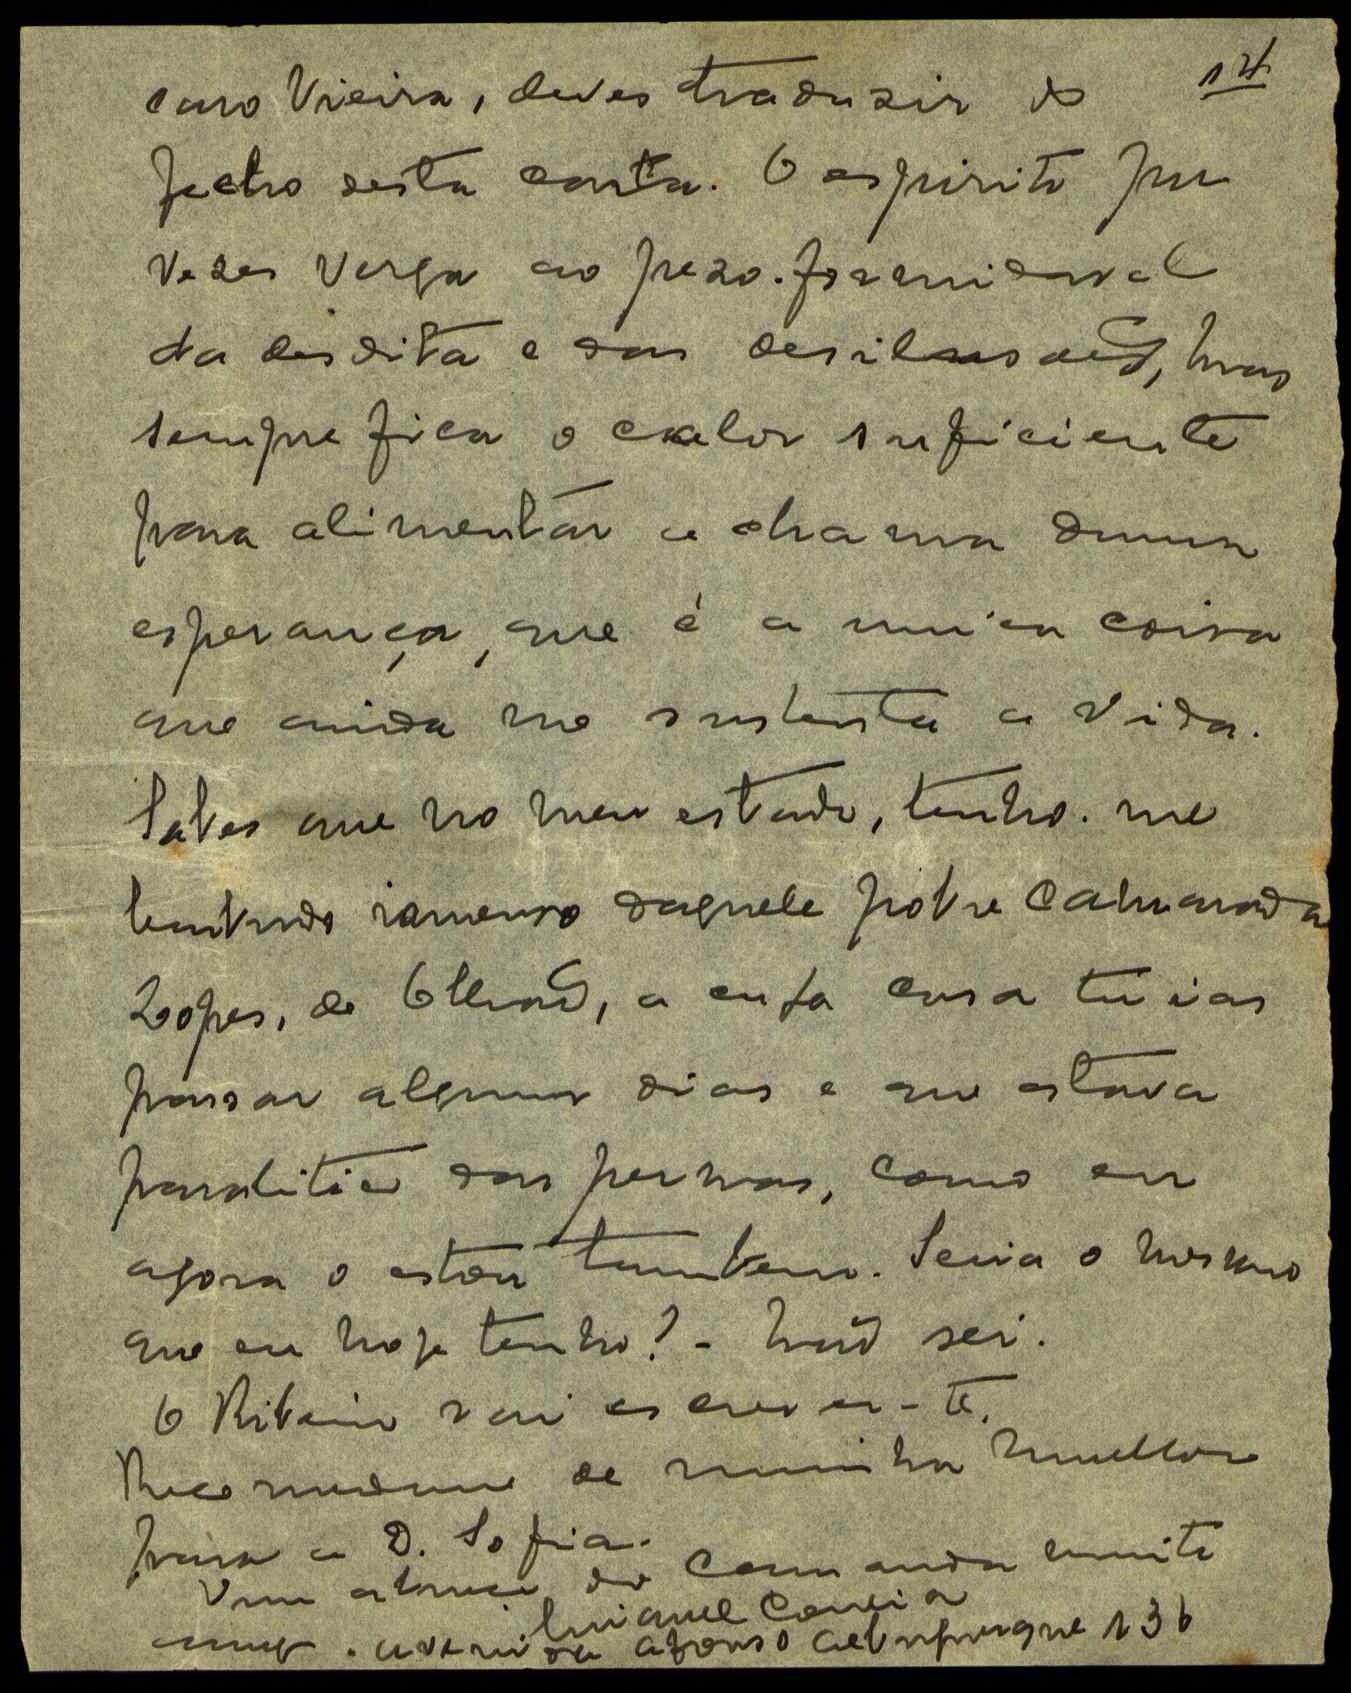 caro Vieira, deves traduzir do
fecho desta carta. O espirito por
vezes verga ao pezo formidavel
da desdita e das desilusões, mas
sempre fica o calor suficiente
para alimentar a chama duma
esperança, que é a unica coisa
que ainda me sustenta a vida.
Sabes que no meu estado, tenho-me
lembrado imenso daquele pobre camarada
Lopes, de Olhão, a cuja casa tu ias
passar alguns dias e que estava
paralitico das pernas, como eu
agora o estou tambem. Seria o mesmo
que eu hoje tenho? - Não sei.
O Ribeiro vai escrever-te.
Recomendame de minha mulher
para a D. Sofia.
Um abraço do camarada muito
amigo. Manuel Correia
avenida afonso albuquerque 136